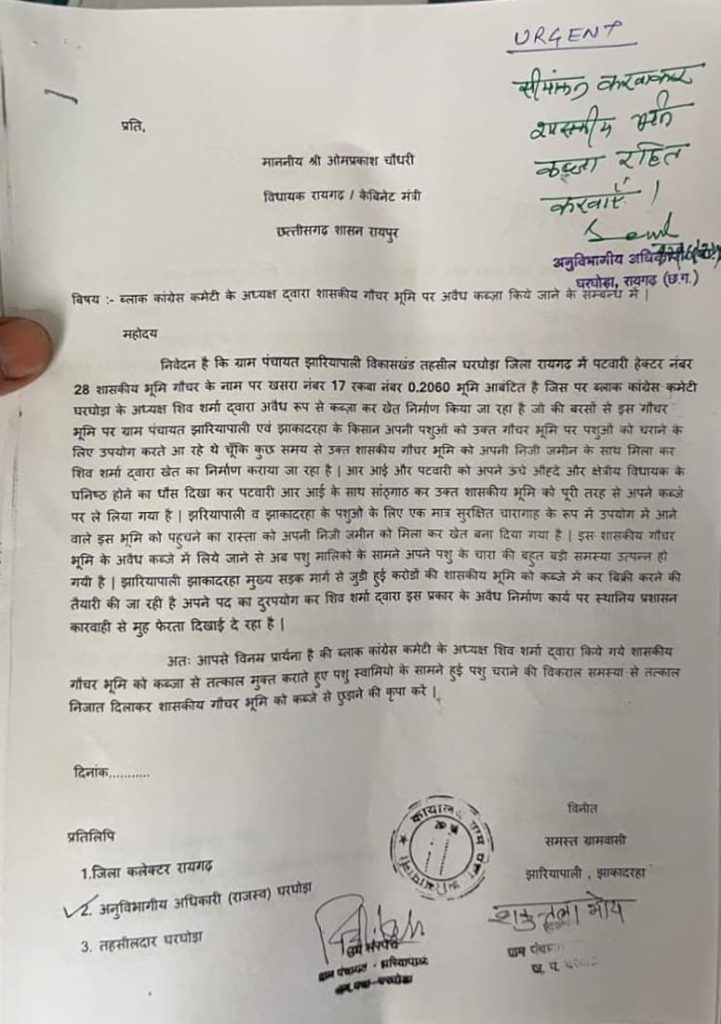 URGENT
सीमांकन करवाकर
शासकीय भूमि
कब्जा रहित
करवाएं।
अनुविभागीय अधिकारी
घरघोड़ा, रायगढ़ (छ.ग.)
प्रति,
माननीय श्री ओमप्रकाश चौधरी
विधायक रायगढ़ / केबिनेट मंत्री
छत्तीसगढ़ शासन रायपुर
बिषय :- ब्लाक कांग्रेस कमेटी के अध्यक्ष द्वारा शासकीय गौचर भूमि पर अवैध कब्ज़ा किये जाने के सम्बन्ध में |
महोदय
निवेदन है कि ग्राम पंचायत झारियापाली विकासखंड तहसील घरघोडा जिला रायगढ़ में पटवारी हेक्टर नंबर
28 शासकीय भूमि गौचर के नाम पर खसरा नंबर 17 रकबा नंबर 0.2060 भूमि आबंटित है जिस पर ब्लाक कांग्रेस कमेटी
घरघोडा के अध्यक्ष शिव शर्मा द्वारा अवैध रूप से कब्ज़ा कर खेत निर्माण किया जा रहा है जो की बरसों से इस गौचर
भूमि पर ग्राम पंचायत झारियापाली एवं झाकादरहा के किसान अपनी पशुओं को उक्त गौचर भूमि पर पशुओं को चराने के
लिए उपयोग करते आ रहे थे चूँकि कुछ समय से उक्त शासकीय गौचर भूमि को अपनी निजी जमीन के साथ मिला कर
शिव शर्मा द्वारा खेत का निर्माण कराया जा रहा है | आर आई और पटवारी को अपने ऊंचे औहदे और क्षेत्रीय विधायक के
घनिष्ठ होने का धौंस दिखा कर पटवारी आर आई के साथ सांठ्गाठ कर उक्त शासकीय भूमि को पूरी तरह से अपने कब्जे
पर ले लिया गया है | झरियापाली व झाकादरहा के पशुओ के लिए एक मात्र सुरक्षित चारागाह के रूप में उपयोग में आने
वाले इस भूमि को पहुचने का रास्ता को अपनी निजी जमीन को मिला कर खेत बना दिया गया है | इस शासकीय गौचर
भूमि के अवैध कब्जे में लिये जाने से अब पशु मालिको के सामने अपने पशु के चारा की बहुत बडी समस्या उत्पन्न हो
गयी है | झारियापाली झाकादरहा मुख्य सड़क मार्ग से जुडी हुई करोडों की शासकीय भूमि को कब्जे में कर बिक्री करने की
तैयारी की जा रही है अपने पद का दुरपयोग कर शिव शर्मा द्वारा इस प्रकार के अवैध निर्माण कार्य पर स्थानिय प्रशासन
कारवाही से मुह फेरता दिखाई दे रहा है |
अतः आपसे विनम्र प्रार्थना है की ब्लाक कांग्रेस कमेटी के अध्यक्ष शिव शर्मा द्वारा किये गये शासकीय
गौचर भूमि को कब्जा से तत्काल मुक्त कराते हुए पशु स्वामियो के सामने हुई पशु चराने की विकराल समस्या से तत्काल
निजात दिलाकर शासकीय गौचर भूमि को कब्जे से छुड़ाने की कृपा करें |
दिनांक...........
विनीत
प्रतिलिपि
समस्त ग्रामवासी
1.जिला कलेक्टर रायगढ़
झारियापाली , झाकादरहा
2. अनुविभागीय अधिकारी (राजस्व) घरघोड़ा
3. तहसीलदार घरघोड़ा
कार्यालय ग्राम
शकुन्तला भोय
उप सरपंच
ग्राम पंचायत - झरियापाली
ग्राम